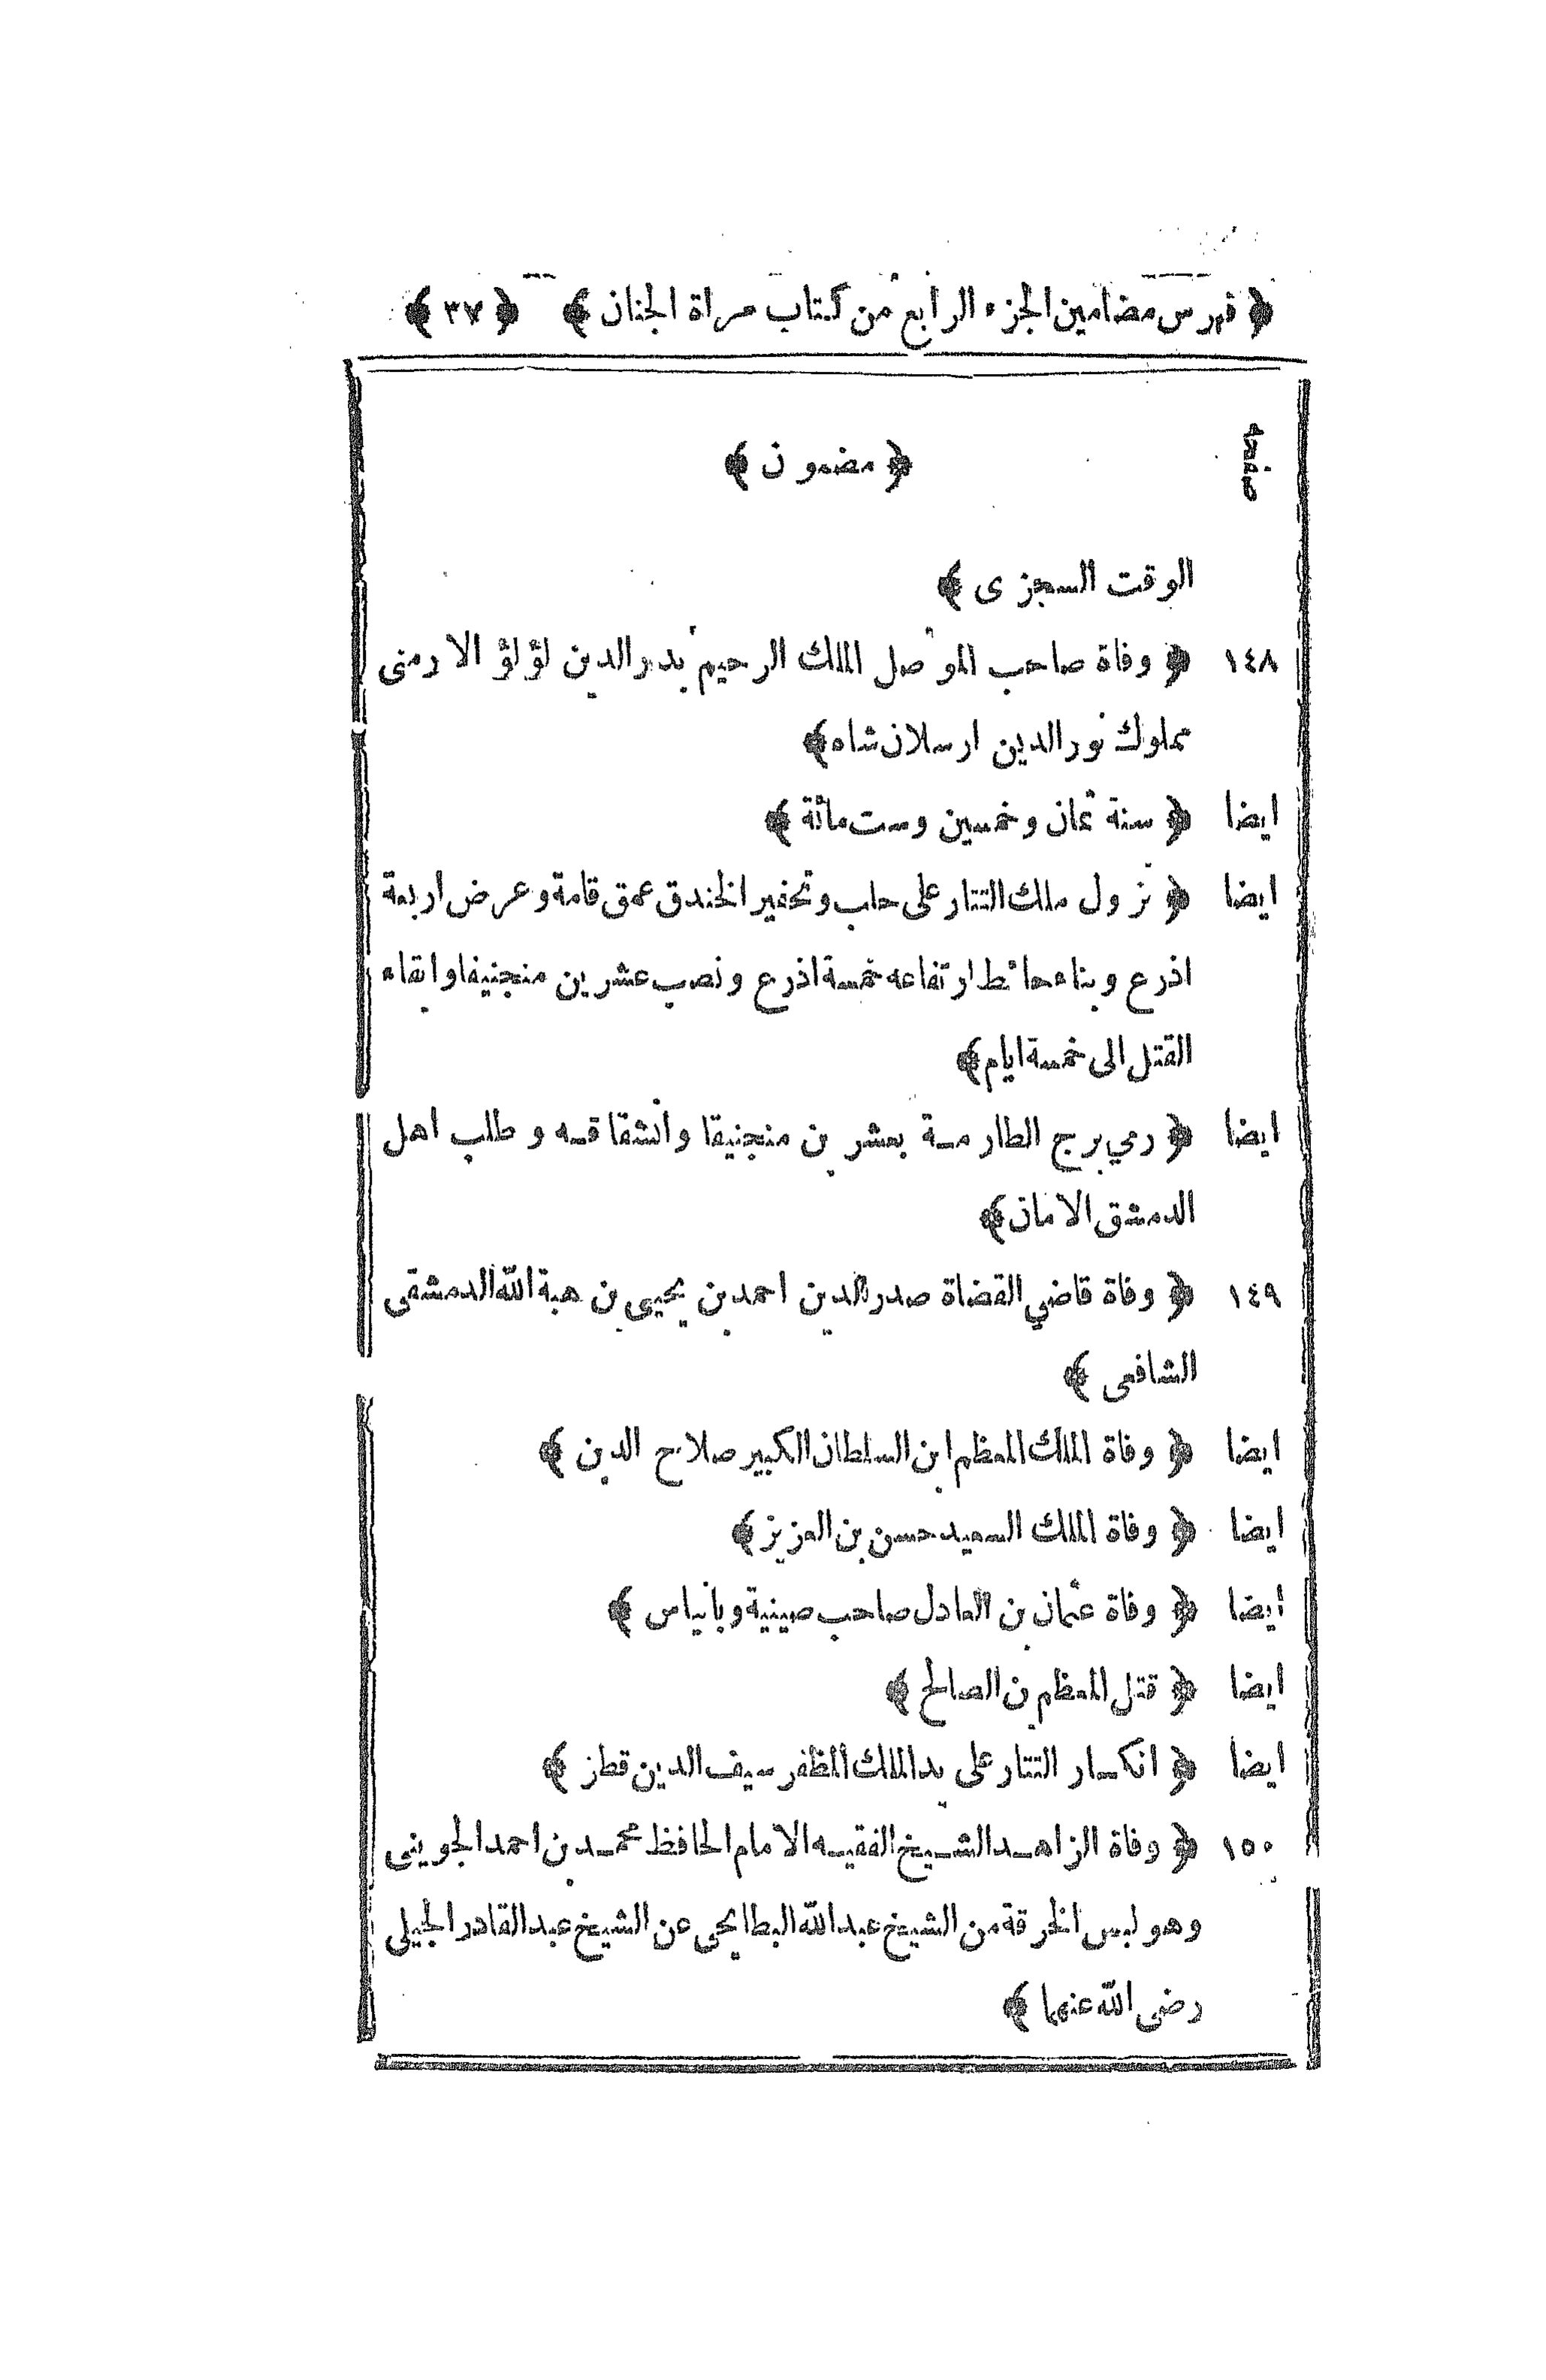 ﴿ فهرس مضامين الجزء الرابع من كتاب مراة الجنان ﴾ ﴿ ٣٧ ﴾
صفحه ﴿ مضمون ﴾
الوقت السجزى ﴾
١٤٨ ﴿ وفاة صاحب الموصل الملك الرحيم بدر الدين لؤلؤ الارمنى
مملوك نور الدين ارسلان شاه ﴾
ايضا ﴿ سنة ثمان وخمسين وست مائة ﴾
ايضا ﴿ نزول ملك التتار على حلب وتحفير الخندق عمق قامة وعرض اربعة
اذرع وبناء حائط ارتفاعه خمسة اذرع ونصب عشرين منجنيقا وابقاه
القتل الى خمسة ايام ﴾
ايضا ﴿ رمي برج الطارمة بعشرين منجنيقا وانشقاقه وطلب اهل
الدمشق الامان ﴾
١٤٩ ﴿ وفاة قاضي القضاة صدر الدين احمد بن يحيى بن هبة الله الدمشقى
الشافعى ﴾
ايضا ﴿ وفاة الملك المعظم ابن السلطان الكبير صلاح الدين ﴾
ايضا ﴿ وفاة الملك السعيد حسن بن العزيز ﴾
ايضا ﴿ وفاة عثمان بن العادل صاحب صبينية وبانياس ﴾
ايضا ﴿ قتل المعظم بن الصالح ﴾
ايضا ﴿ انكسار التتار على يد الملك المظفر سيف الدين قطز ﴾
١٥٠ ﴿ وفاة الزاهد الشيخ الفقيه الامام الحافظ محمد بن احمد الجوينى
وهو لبس الخرقة من الشيخ عبد الله البطايحى عن الشيخ عبد القادر الجيلى
رضى الله عنهما ﴾